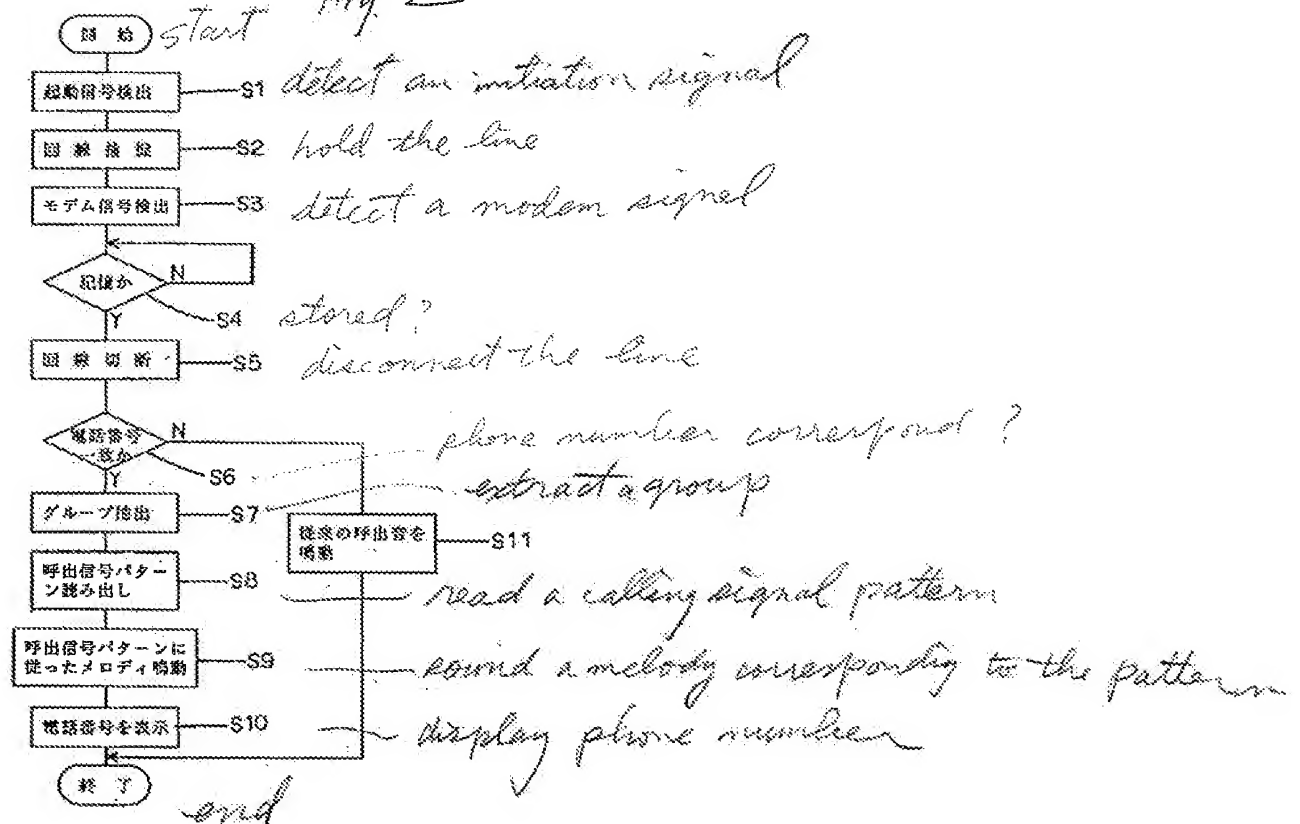 Fig. 2
開始 start
起動信号検出 S1 detect an initiation signal
S2 hold the line
モデム信号検出 S3 detect a modem signal
記憶か N
Y S4 stored?
回線切断 S5 disconnect the line
電話番号 N phone number correspond?
一致か S6
Y extract a group
グループ抽出 S7
従来の呼出音を
鳴動 S11
呼出信号パター
ン読み出し S8 read a calling signal pattern
呼出信号パターンに
従ったメロディ鳴動 S9 sound a melody correspondig to the pattern
電話番号を表示 S10 display phone number
終了
end